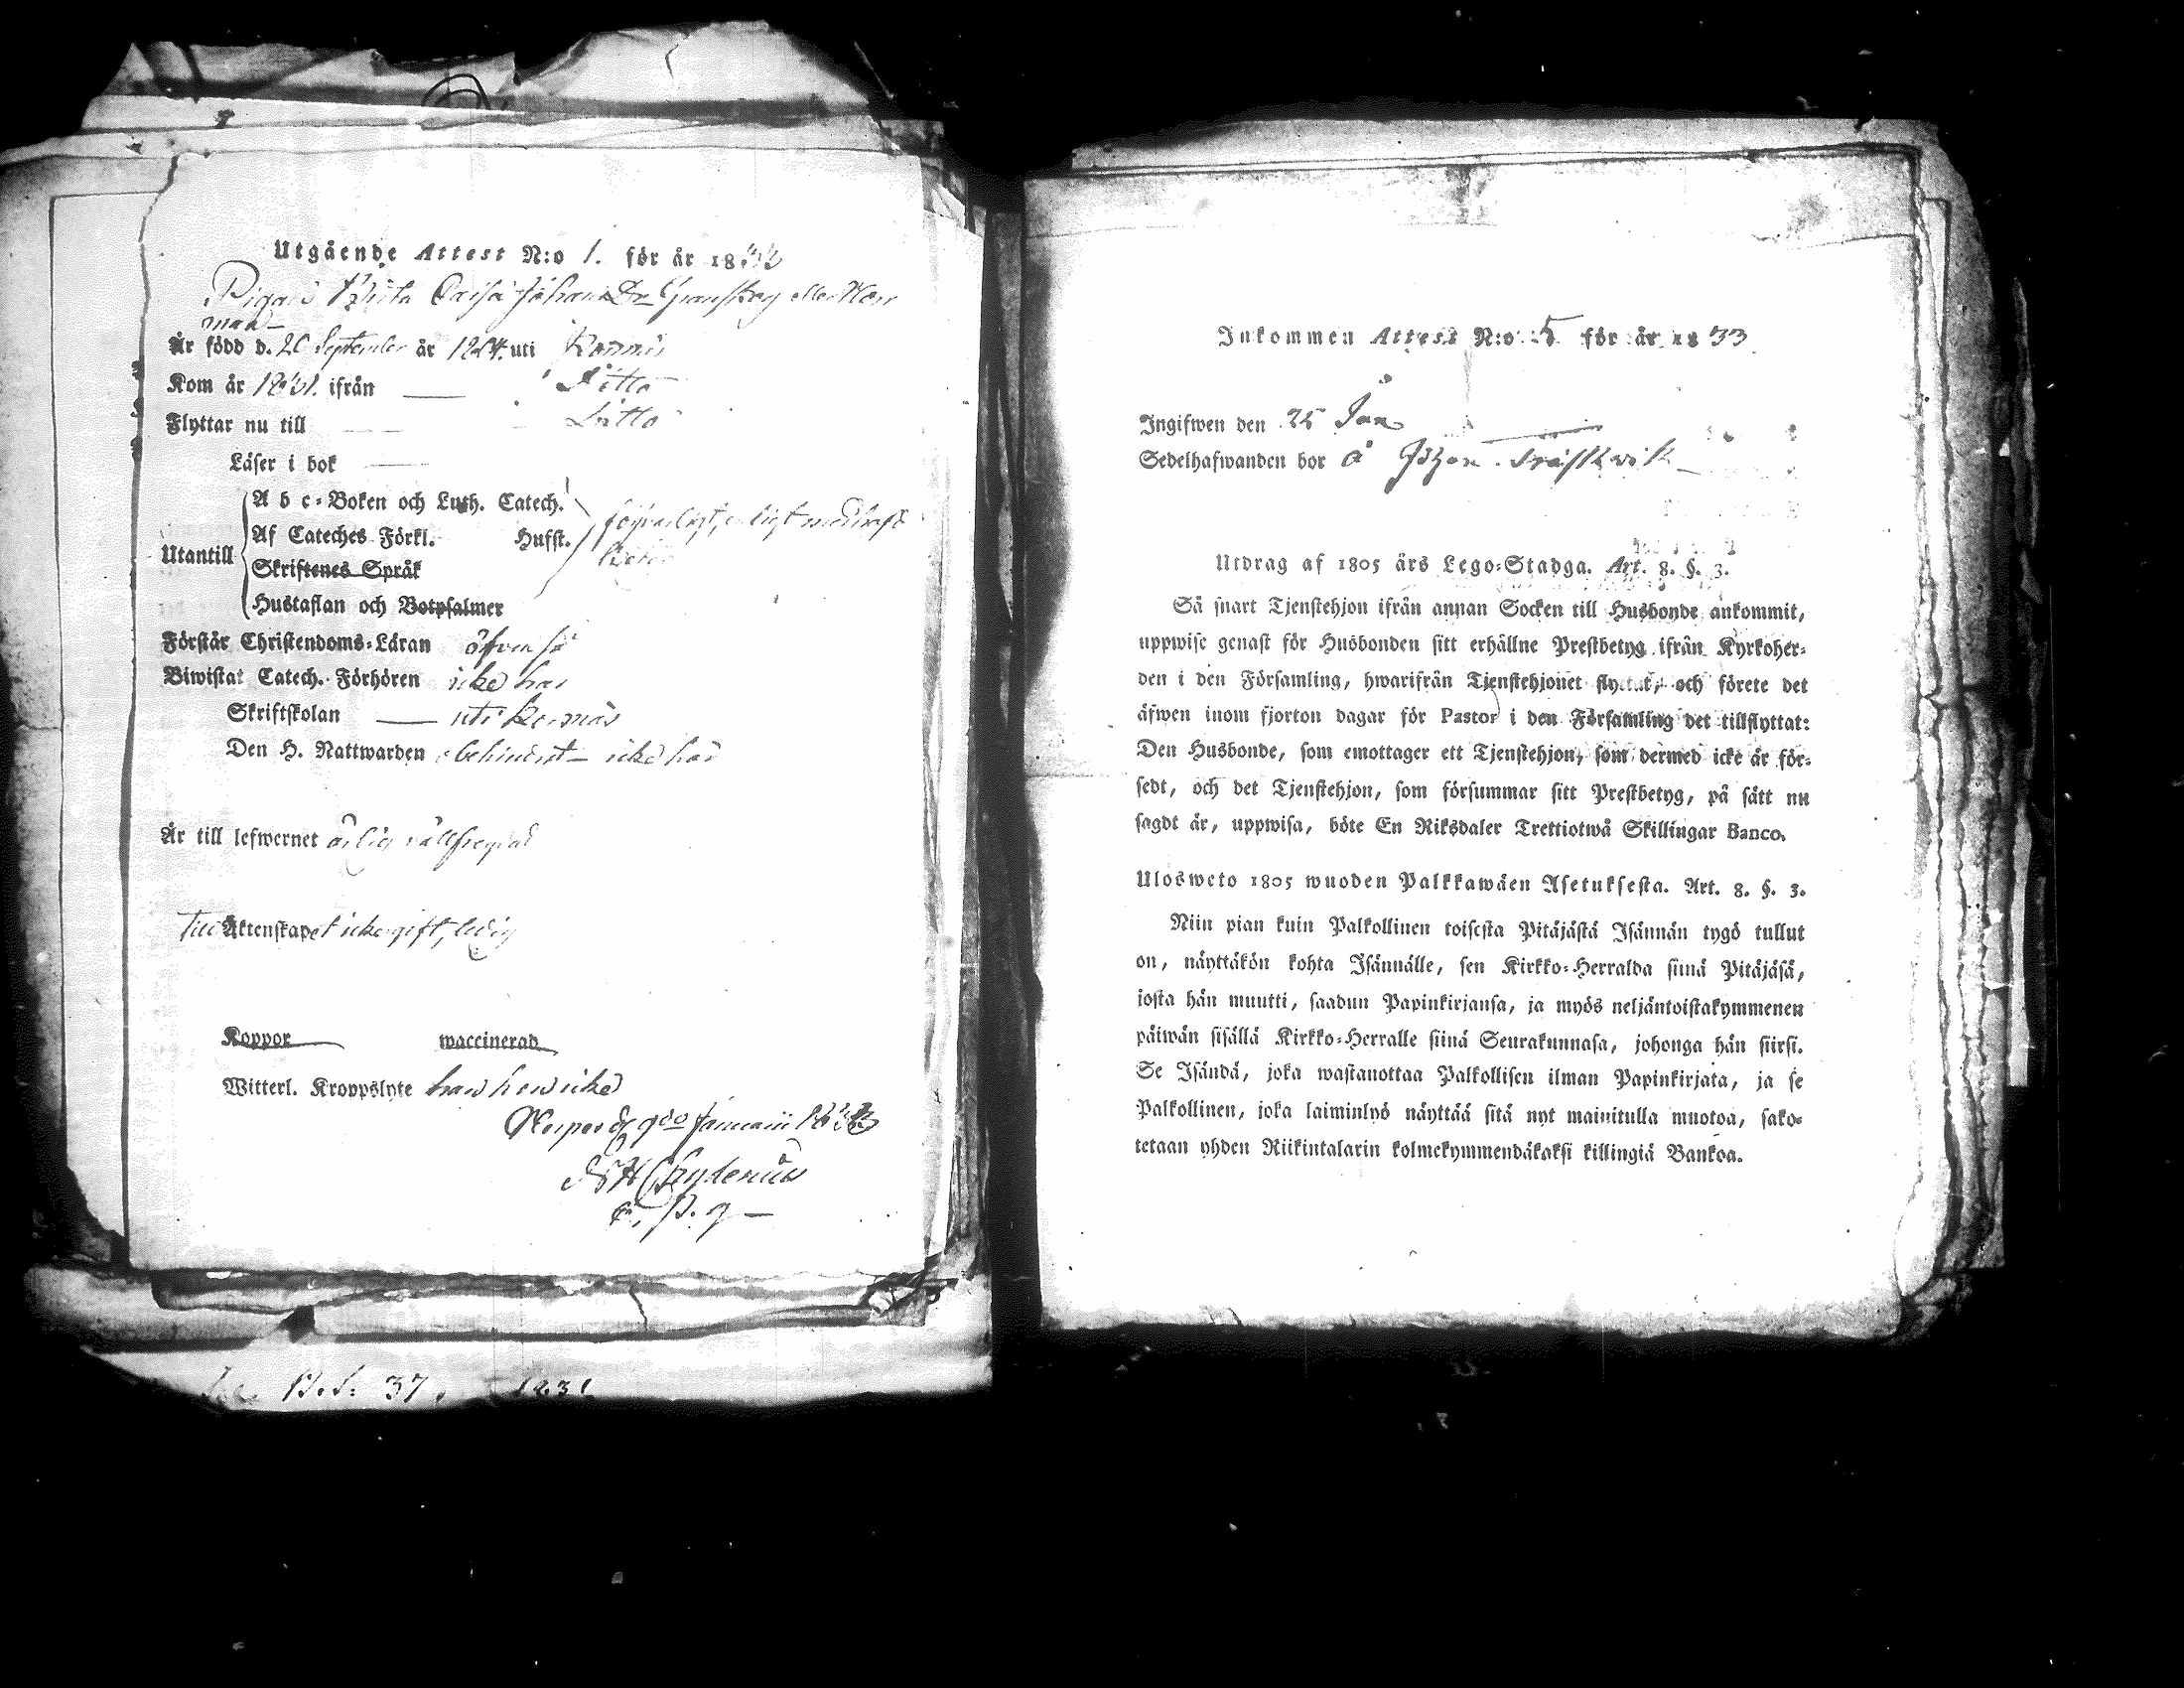 Utgående Attest N:o 1. för år 1833
Pigan Brita Caisa Johans Dr Granskog eller Norr
man
Är född d. 20 September år 1804. uti
Kom år 1831. ifrån — Ditto
Flyttar nu till — Ditto
Läser i bok —
Utantill
A b c-Boken och Luth. Catech.
Af Cateches Förkl. Hufst.
Skriftenes Språk
Hustaflan och Botpsalmer
Förstår Christendoms-Läran äfven så
Biwistat Catech. Förhören icke här
Skriftskolan — uti
Den H. Nattwarden obehindrat — icke här
Är till lefwernet ärlig wälfregdad
Till Äktenskapet icke gift, ledig
Koppor waccinerad
Witterl. Kroppslyte har hon icke
d. 9de Januarii 1833
Chydenius
Inkommen Attest N:o 5 för år 1833
Ingifwen den 25 Jan
Sedelhafwanden bor å Träskvik
Utdrag af 1805 års Lego-Stadga. Art. 8. §. 3.
Så snart Tjenstehjon ifrån annan Socken till Husbonde ankommit,
uppwise genast för Husbonden sitt erhållne Prestbetyg ifrån Kyrkoher-
den i den Församling, hwarifrån Tjenstehjonet flyttat, och förete det
äfwen inom fjorton dagar för Pastor i den Församling det tillflyttat:
Den Husbonde, som emottager ett Tjenstehjon, som dermed icke är för-
sedt, och det Tjenstehjon, som försummar sitt Prestbetyg, på sätt nu
sagdt är, uppwisa, böte En Riksdaler Trettiotwå Skillingar Banco.
Ulosweto 1805 wuoden Palkkawäen Asetuksesta. Art. 8. §. 3.
Niin pian kuin Palkollinen toisesta Pitäjästä Isännän tygö tullut
on, näyttäkön kohta Isännälle, sen Kirkko-Herralda siinä Pitäjäsä,
josta hän muutti, saadun Papinkirjansa, ja myös neljäntoistakymmenen
päiwän sisällä Kirkko-Herralle siinä Seurakunnasa, johonga hän siirsi.
Se Isändä, joka wastanottaa Palkollisen ilman Papinkirjata, ja se
Palkollinen, joka laiminlyö näyttää sitä nyt mainitulla muotoa, sako-
tetaan yhden Riikintalarin kolmekymmendäkaksi killingiä Bankoa.
37. 1831